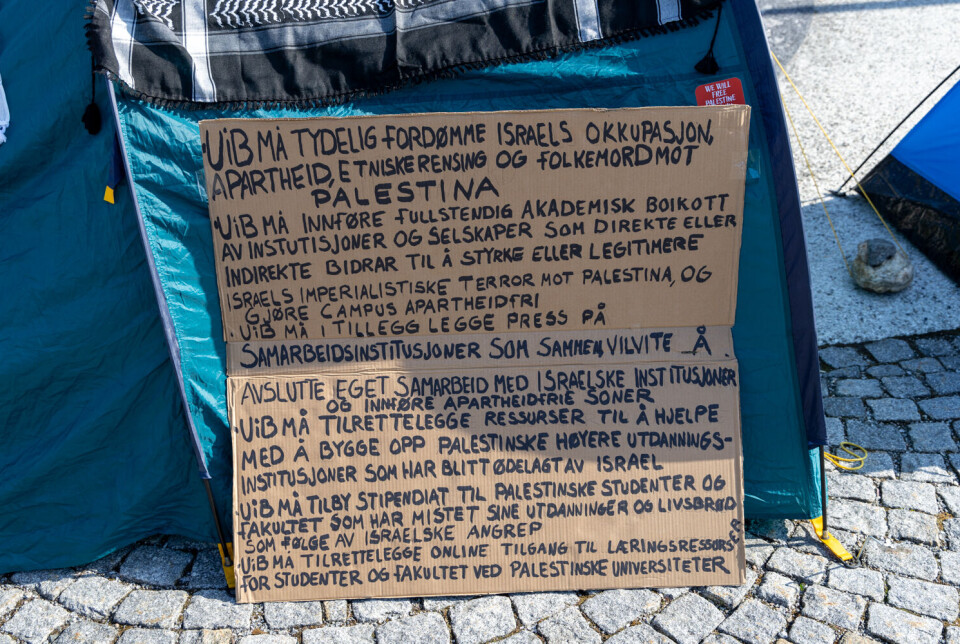 WE WILL
FREE
PALESTINE
·UiB MÅ TYDELIG FORDØMME ISRAELS OKKUPASJON,
APARTHEID, ETNISK RENSING OG FOLKEMORD MOT
PALESTINA
·UiB MÅ INNFØRE FULLSTENDIG AKADEMISK BOIKOTT
AV INSTUTISJONER OG SELSKAPER SOM DIREKTE ELLER
INDIREKTE BIDRAR TIL Å STYRKE ELLER LEGITIMERE
ISRAELS IMPERIALISTISKE TERROR MOT PALESTINA, OG
GJØRE CAMPUS APARTHEIDFRI
·UiB MÅ I TILLEGG LEGGE PRESS PÅ
SAMARBEIDSINSTITUSJONER SOM SAMMEN, VIL VITE Å
AVSLUTTE EGET SAMARBEID MED ISRAELSKE INSTITUSJONER
OG INNFØRE APARTHEIDFRIE SONER
·UiB MÅ TILRETTELEGGE RESSURSER TIL Å HJELPE
MED Å BYGGE OPP PALESTINSKE HØYERE UTDANNINGS-
INSTITUSJONER SOM HAR BLITT ØDELAGT AV ISRAEL
·UiB MÅ TILBY STIPENDIAT TIL PALESTINSKE STUDENTER OG
FAKULTET SOM HAR MISTET SINE UTDANNINGER OG LIVSBRØD
SOM FØLGE AV ISRAELSKE ANGREP
·UiB MÅ TILRETTELEGGE ONLINE TILGANG TIL LÆRINGSRESSURSER
FOR STUDENTER OG FAKULTET VED PALESTINSKE UNIVERSITETER